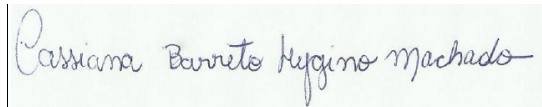 Cassiana Barreto Hygino Machado